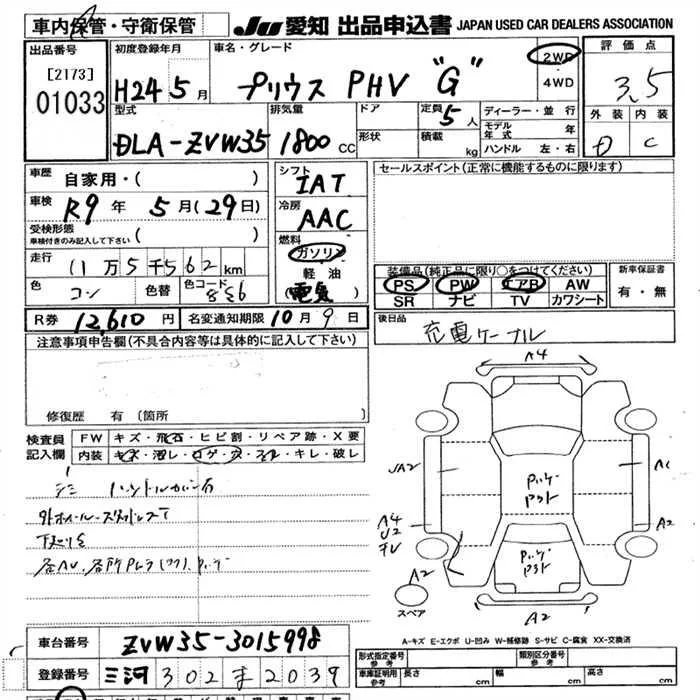 車内保管・守衛保管 JU 愛知 出品申込書 JAPAN USED CAR DEALERS ASSOCIATION
出品番号 [2173] 01033
初度登録年月 H24 5月
車名・グレード プリウス PHV "G"
2WD・4WD
評価点 3.5
外装 内装 D C
型式 DLA-ZVW35
排気量 1800 CC
ドア 形状
定員 5人 積載 kg
ディーラー・並行
モデル年式 年
ハンドル 左・右
車歴 自家用・( )
車検 R9年 5月(29日)
受検形態 車検付きのみ記入して下さい ( )
走行 11万5千562km
色 コン 色替 色コード 8S6
シフト IAT
冷房 AAC
燃料 ガソリン 軽油 電気
セールスポイント(正常に機能するものに限ります)
装備品(純正品に限り○をつけてください)
PS PW エアB AW
SR ナビ TV カワシート
新車保証書 有・無
R券 12,610円 名変通知期限 10月9日
後日品 充電ケーブル
注意事項申告欄(不具合内容等は具体的に記入して下さい)
修復歴 有 (箇所
検査員記入欄
FW キズ・飛石・ヒビ割・リペア跡・X要
内装 キズ・汚レ・コゲ・穴・スレ・キレ・破レ
シミ
下廻りS
A4
JA2
A1
A4
U2
A2
A2
スペア
A2
A-キズ E-エクボ U-凹み W-補修跡 S-サビ C-腐食 XX-交換済
車台番号 ZVW35-3015998
登録番号 三河 302 ま 2039
形式指定番号 参考
類別区分番号 参考
車庫証明用 参考 長さ cm 幅 cm 高さ cm